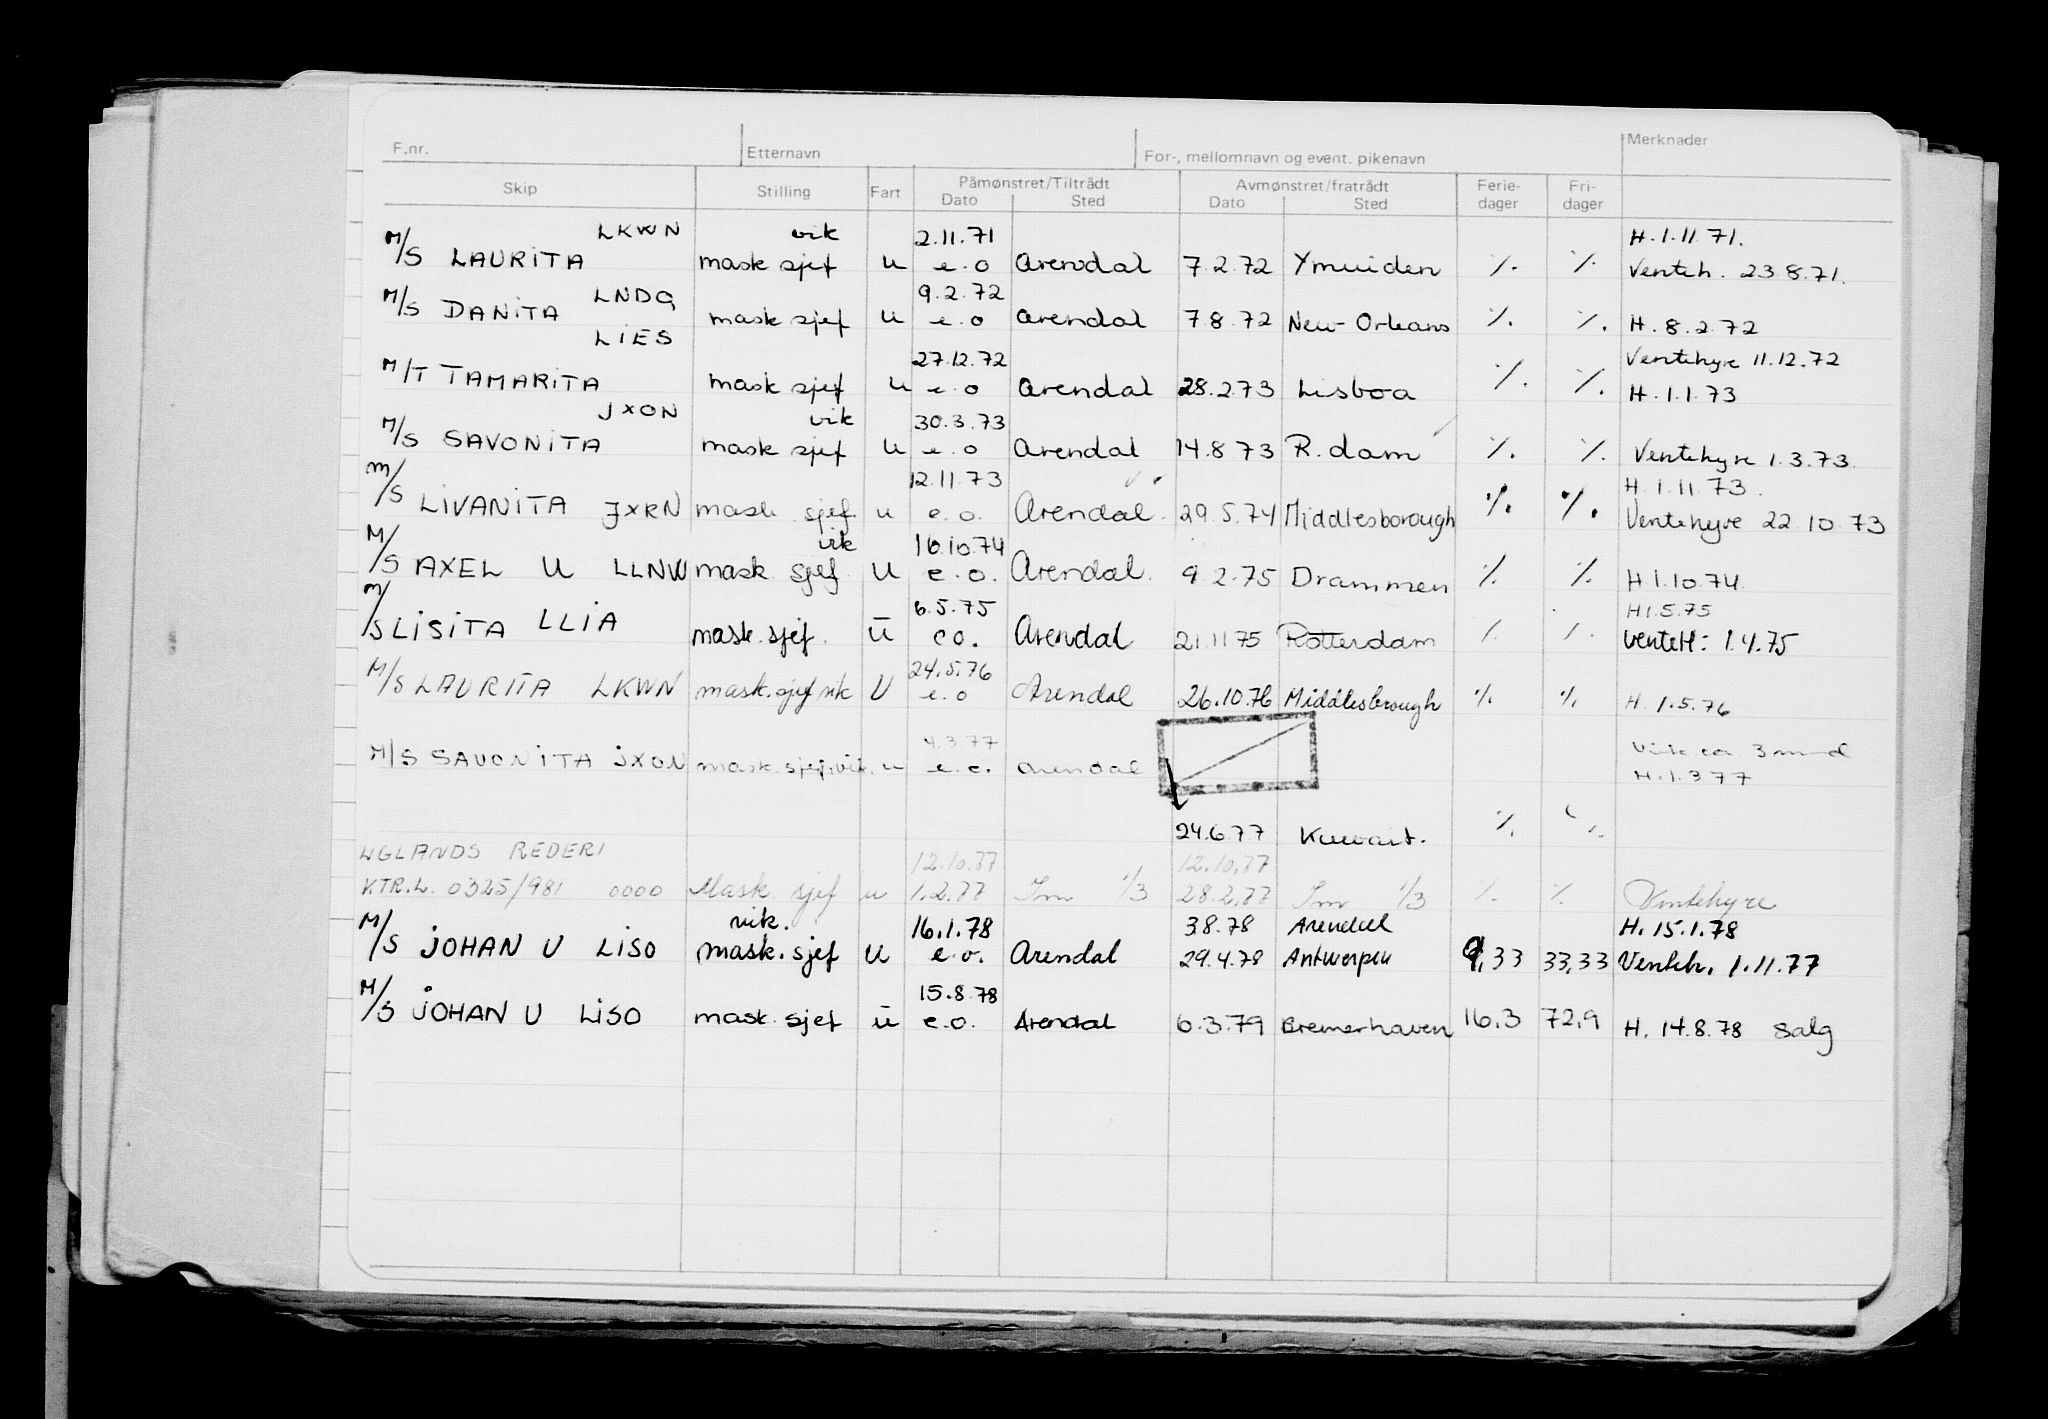 F.nr. Etternavn For-, mellomnavn og event. pikenavn Merknader
Skip Stilling Fart Påmønstret/Tiltrådt Avmønstret/fratrådt Ferie- Fri-
Dato Sted Dato Sted dager dager
LKWN vik 2.11.71 H.1.11.71.
M/S LAURITA mask sjef u e.o Arendal 7.2.72 Ymuiden %. %. Venteh. 23.8.71.
LNDQ 9.2.72
M/S DANITA mask sjef u e.o Arendal 7.8.72 New-Orleans %. %. H.8.2.72
LIES 27.12.72 Ventehyre 11.12.72
M/T TAMARITA mask sjef u e.o Arendal 28.2.73 Lisboa %. %. H.1.1.73
JXON vik 30.3.73
M/S SAVONITA mask sjef u e.o Arendal 14.8.73 R.dam %. %. Ventehyre 1.3.73.
12.11.73 H.1.11.73.
M/S LIVANITA JXRN mask sjef u e.o. Arendal. 29.5.74 Middlesborough %. %. Ventehyre 22.10.73
vik 16.10.74
M/S AXEL U LLNW mask sjef u e.o. Arendal. 9.2.75 Drammen %. %. H 1.10.74.
6.5.75 H1.5.75
M/S LISITA LLIA mask.sjef. u eo. Arendal 21.11.75 Rotterdam %. %. VenteH: 1.4.75
24.5.76
M/S LAURITA LKWN mask.sjef vik U e.o Arendal 26.10.76 Middlesbrough %. %. H.1.5.76
4.3.77 Vik ca 3 mnd
M/S SAVONITA JXON mask.sjef.vik. u e.o. Arendal H.1.3.77
24.6.77 Kuwait. %. %.
UGLANDS REDERI 12.10.77 12.10.77
KTR.L. 0325/981 0000 Mask. sjef u 1.2.77 Im 1/3 28.2.77 Im 1/3 %. %. Ventehyre
vik. 16.1.78 3.8.78 Arendal H. 15.1.78
M/S JOHAN U LISO mask.sjef u e.o. Arendal 29.4.78 Antwerpen 9,33 33,33 Venteh. 1.11.77
15.8.78
M/S JOHAN U LISO mask. sjef u e.o. Arendal 6.3.79 Bremerhaven 16,3 72,9 H. 14.8.78 salg